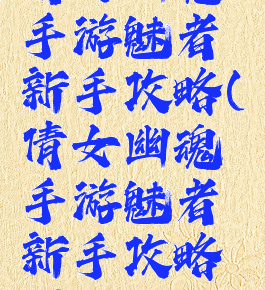 手游魅者
新手攻略(
倩女幽魂
手游魅者
新手攻略